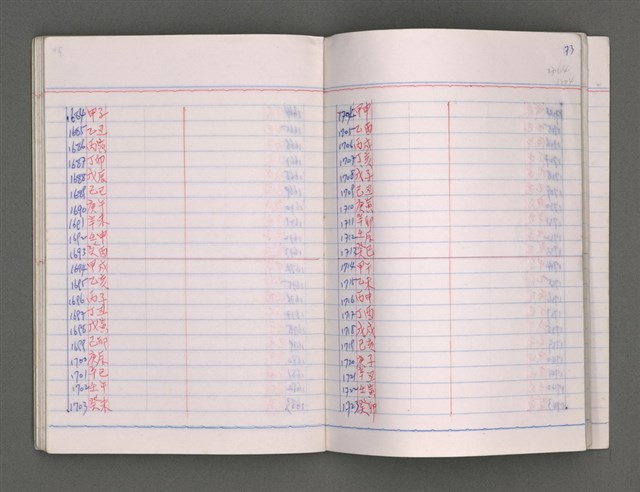 1684 甲子
1685 乙丑
1686 丙寅
1687 丁卯
1688 戊辰
1689 己巳
1690 庚午
1691 辛未
1692 壬申
1693 癸酉
1694 甲戌
1695 乙亥
1696 丙子
1697 丁丑
1698 戊寅
1699 己卯
1700 庚辰
1701 辛巳
1702 壬午
1703 癸未
73
1704 甲申
1705 乙酉
1706 丙戌
1707 丁亥
1708 戊子
1709 己丑
1710 庚寅
1711 辛卯
1712 壬辰
1713 癸巳
1714 甲午
1715 乙未
1716 丙申
1717 丁酉
1718 戊戌
1719 己亥
1720 庚子
1721 辛丑
1722 壬寅
1723 癸卯